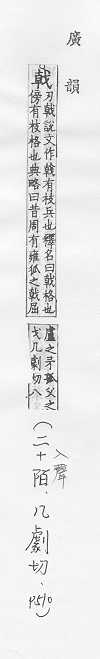 廣韻
戟
刃戟說文作𢧢有枝兵也釋名曰戟格也
傍有枝格也典略曰昔周有雍狐之戟屈
盧之矛孤父之
戈几劇切八
入聲
(二十陌.几劇切.p510)